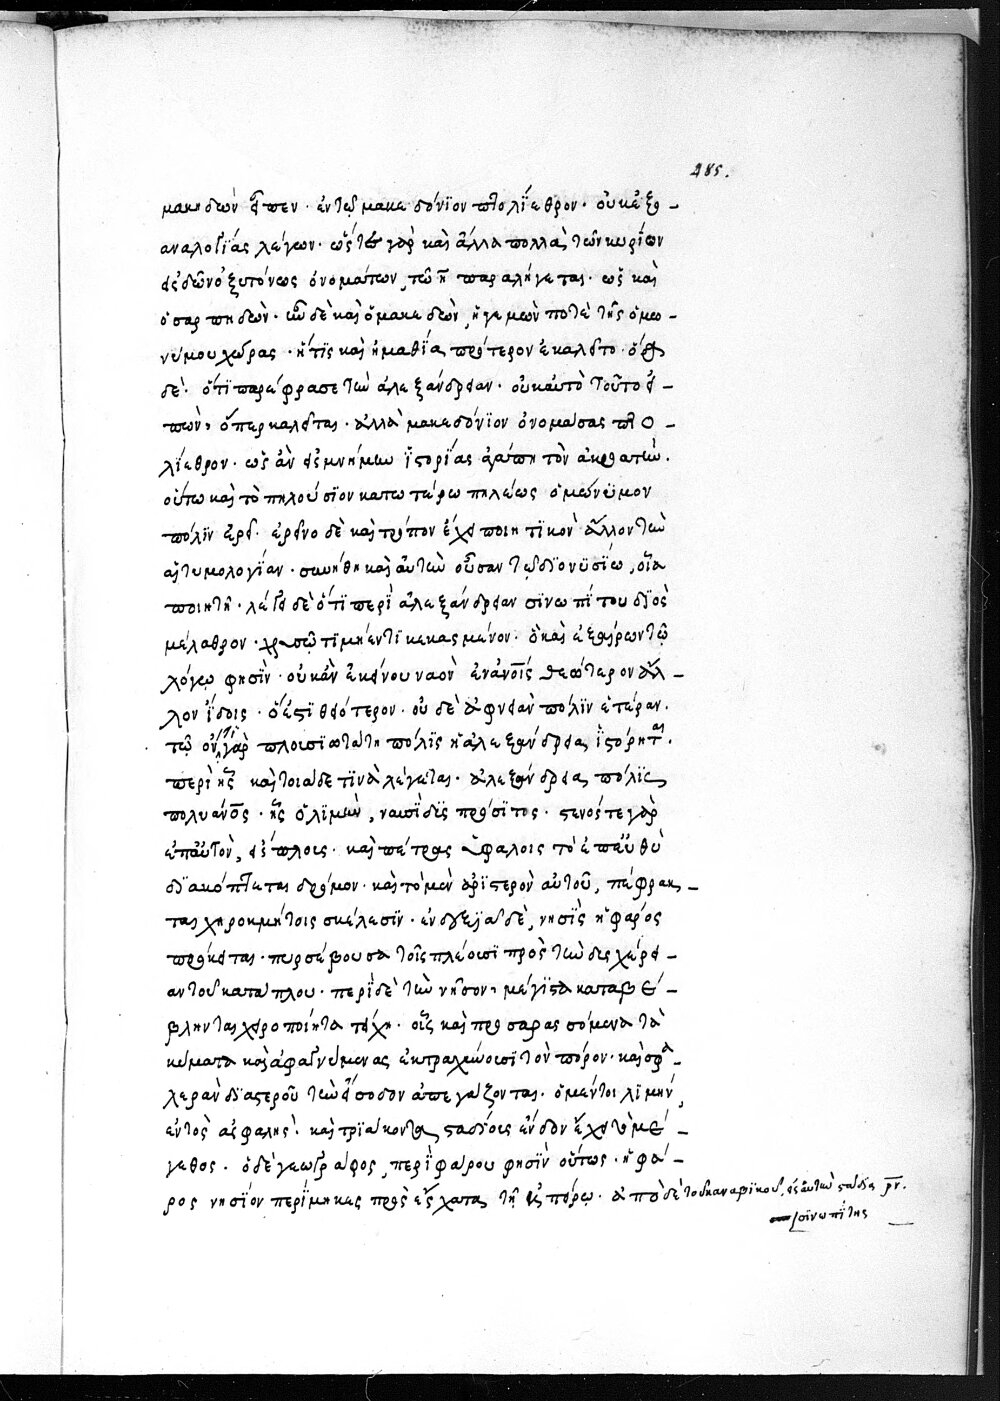 485.
μακηδὼν εἶπεν· ἐν τῷ μακεδόνιον πτολίεθρον· οὐκ ἐξ
ἀναλογίας λέγων· ὥς τε γὰρ καὶ ἄλλα πολλὰ τῶν κυρίων
εἰς δων ὀξυτόνως ὀνομάτων, τῶ η παραλήγεται· ὡς καὶ
ὁ σαρπηδὼν· οὗ δὲ καὶ ὁ μακεδὼν, ἡγεμὼν ποτὲ τῆς ὁμω-
νύμου χώρας· ἥτις καὶ ἠμαθία πρότερον ἐκαλεῖτο· ὅρα
δὲ· ὅτι παρέφρασε τὴν ἀλεξάνδρειαν· οὐκ αὐτὸ τοῦτο εἰ-
πών, ὅπερ καλεῖται· ἀλλὰ μακεδόνιον ὀνομάσας πτο-
λίεθρον· ὡς ἂν εἰς μνήμην ἱστορίας ἀγάγῃ τὸν ἀκροατὴν.
οὕτω καὶ τὸ πηλούσιον κατωτέρω πηλέως ὁμώνυμον
πόλιν ἐρεῖ· ἐκεῖνο δὲ καὶ τρόπον ἔχει ποιητικὸν ἄλλον τὴν
ἐτυμολογίαν· συνήθη καὶ αὐτὴν οὖσαν τῷ διονυσίῳ, οἷα
ποιητῇ· λέγει δὲ ὅτι περὶ ἀλεξάνδρειαν σινωπίτου διὸς
μέλαθρον· χρυσῷ τιμήεντι κεκασμένον· ὃ καὶ ἐξαίρων τῷ
λόγῳ φησὶν· οὐκ ἂν ἐκείνου ναὸν ἐν ἀνοις θεώτερον ἄλ-
λον ἴδοις· ὅ ἐστι θειότερον· οὐδὲ ἀφνειὰν πόλιν ἑτέραν.
τῷ ὄντι γὰρ πλουσιωτάτη πόλις ἡ ἀλεξάνδρεια ἱστόρηται.
περὶ ἧς καὶ τοιάδε τινὰ λέγεται· ἀλεξάνδρεια πόλις
πολυάνος· ἧς ὁ λιμὴν, ναυσὶ δὶς πρόσιτος· στενός τε γὰρ
ἐπ' αὐτὸν, εἴσπλους· καὶ πέτραις ὑφάλοις τὸ ἐπ' εὐθὺ
διακόπτεται δρόμον· καὶ τὸ μὲν ἀρίστερον αὐτοῦ, πέφρακ-
ται χειροκμήτοις σκέλεσιν· ἐν δεξιᾷ δὲ, νησὶς ἡ φάρος
πρόκειται· πυρσεύουσα τοῖς πλέουσι πρὸς τὴν δυσχέρει-
αν τοῦ κατάπλου· περὶ δὲ τὴν νῆσον, μέγιστα καταβέ-
βληνται χειροποίητα τείχη· οἷς καὶ προσαρασσόμενα τὰ
κύματα καὶ ἀφαγνύμενα, ἐκτραχύνουσι τὸν πόρον· καὶ σφα-
λερὰν διαπεροῦ τὴν εἴσοδον ἀπεργάζονται· ὁ μέντοι λιμὴν,
ἐντὸς ἀσφαλὴς· καὶ τριάκοντα σταδίοις ἔνδον ἔχει τὸ μέ-
γεθος· ὁ δὲ γεωγράφος, περὶ φάρου φησὶν οὕτως· ἡ φά-
ρος νησίον περίμηκες πρὸς ἔσχατα τῇ ἠπείρῳ· ἀπὸ δὲ τοῦ κανωβικοῦ, εἰς αὐτὴν στάδια ρν.
σινωπίτης